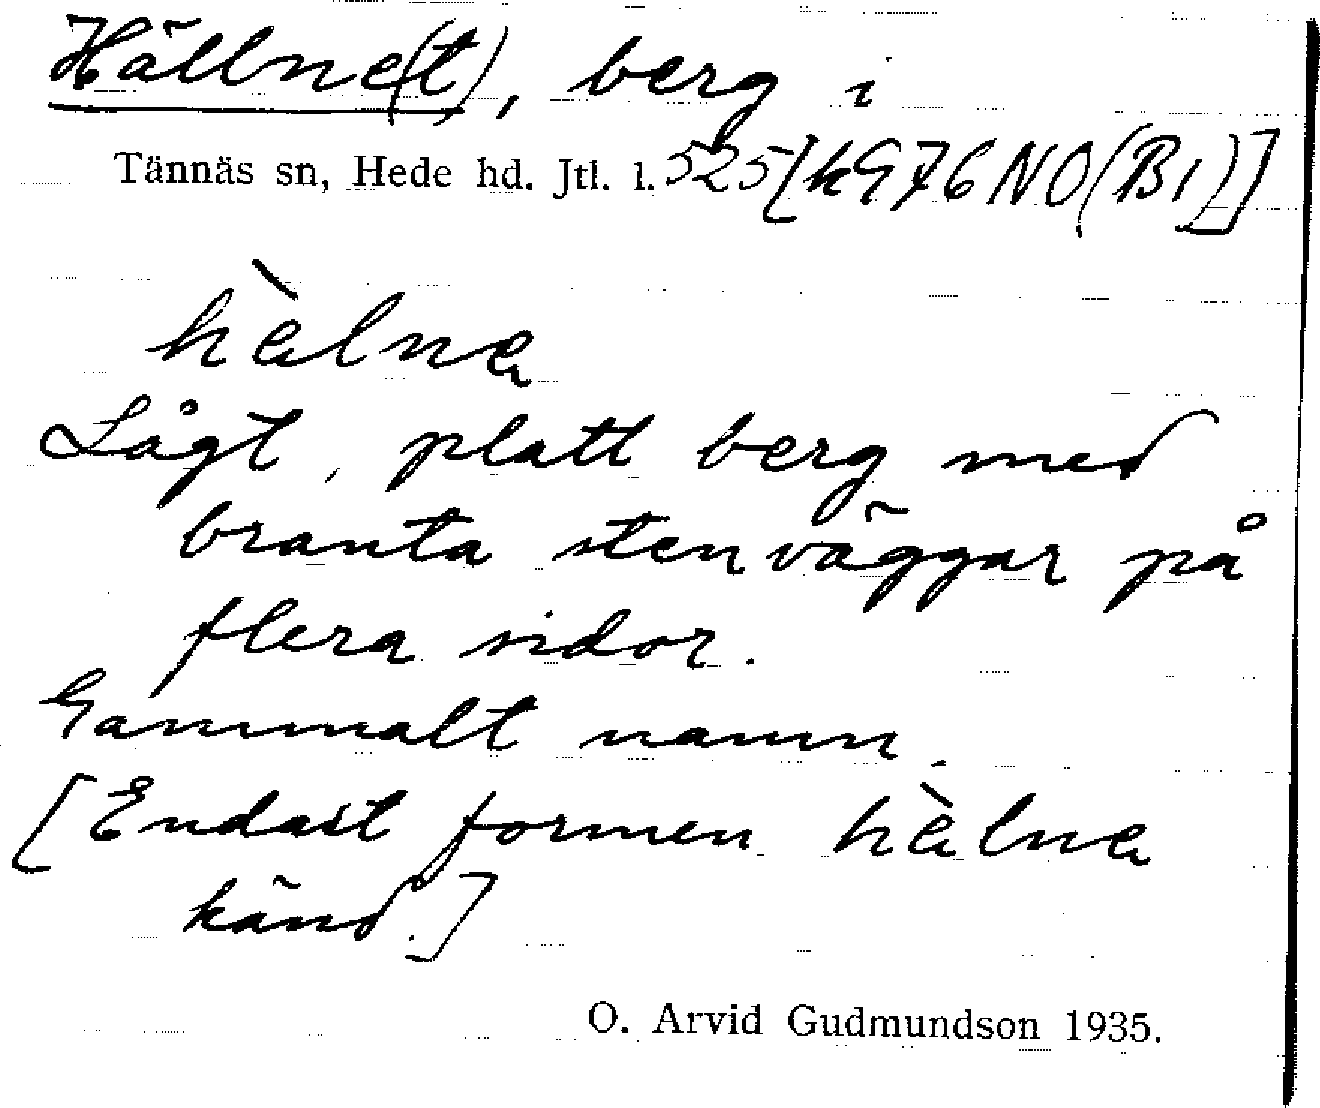 Hällne(t), berg i
Tännäs sn, Hede hd. Jtl. l. 525 [k976NO(B1)]
hàlna
Lågt, platt berg med
branta stenväggar på
flera sidor.
Gammalt namn.
[Endast formen hàlna
känd.]
O. Arvid Gudmundson 1935.